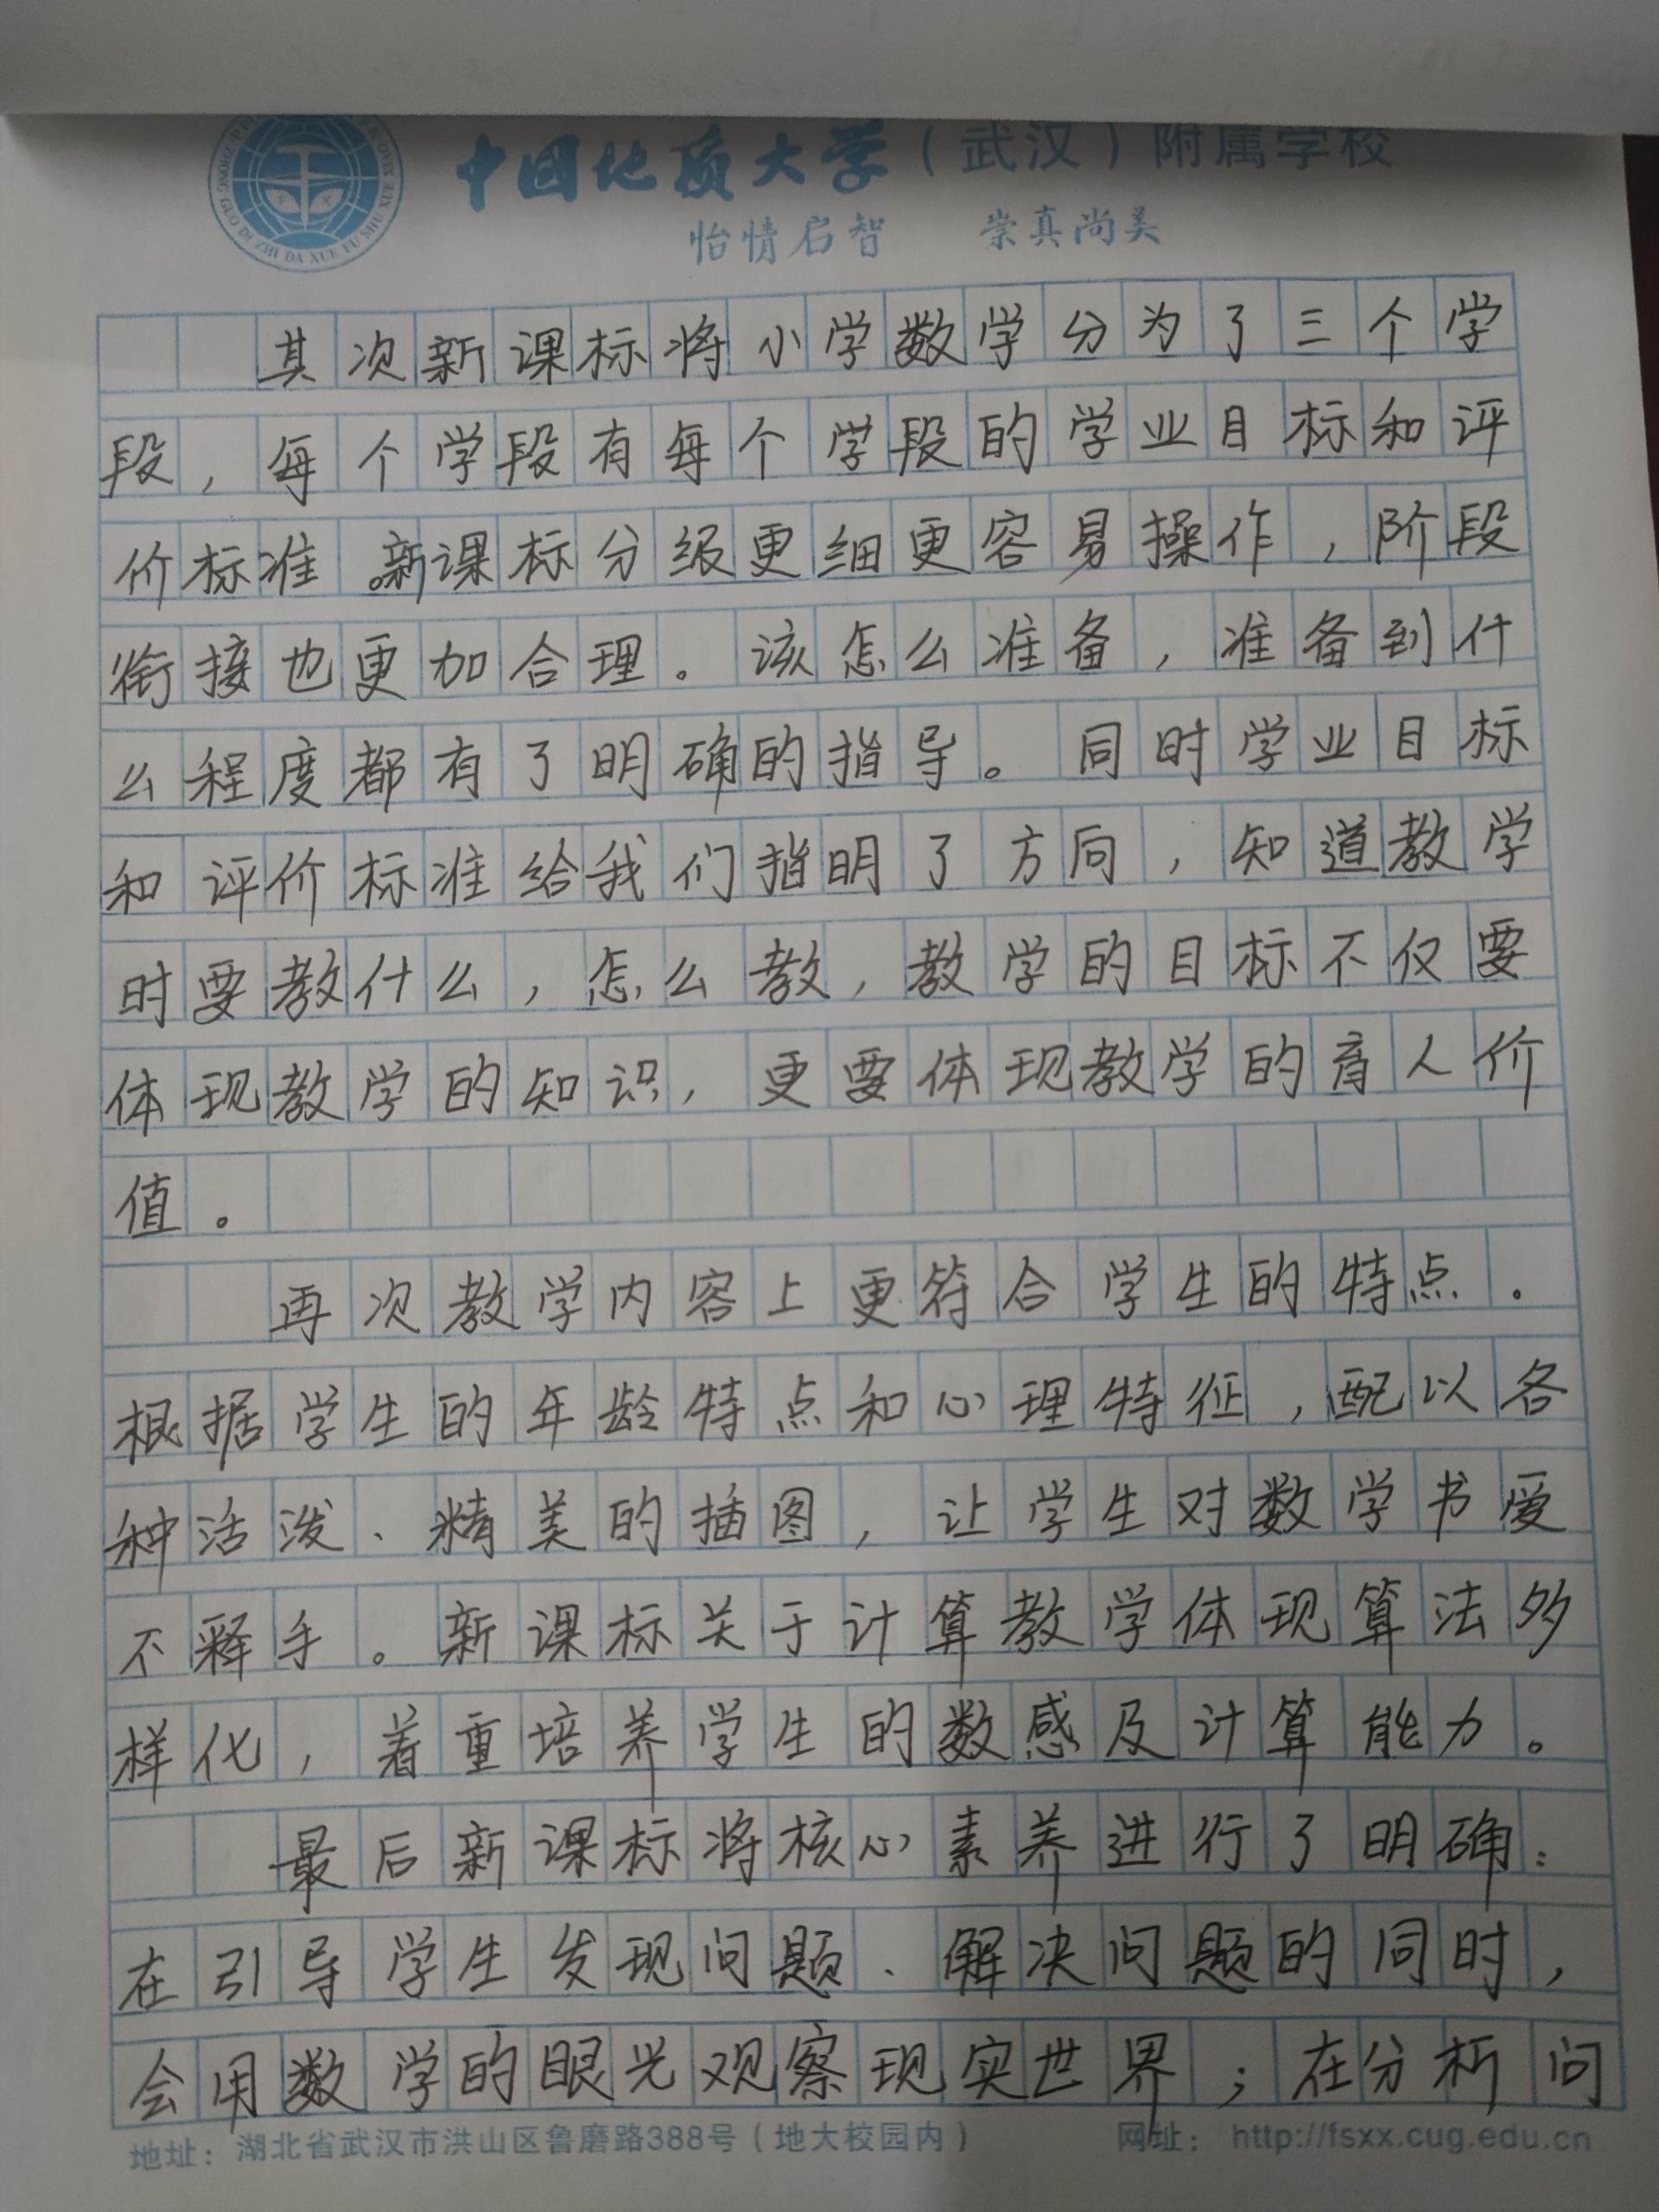 中国地质大学（武汉）附属学校
怡情启智 崇真尚美
ZHONG GUO DI ZHI DA XUE FU SHU XUE XIAO
其次新课标将小学数学分为了三个学
段，每个学段有每个学段的学业目标和评
价标准。新课标分级更细更容易操作，阶段
衔接也更加合理。该怎么准备，准备到什
么程度都有了明确的指导。同时学业目标
和评价标准给我们指明了方向，知道教学
时要教什么，怎么教，教学的目标不仅要
体现教学的知识，更要体现教学的育人价
值。
再次教学内容上更符合学生的特点。
根据学生的年龄特点和心理特征，配以各
种活泼、精美的插图，让学生对数学书爱
不释手。新课标关于计算教学体现算法多
样化，着重培养学生的数感及计算能力。
最后新课标将核心素养进行了明确：
在引导学生发现问题、解决问题的同时，
会用数学的眼光观察现实世界；在分析问
地址：湖北省武汉市洪山区鲁磨路388号（地大校园内） 网址：http://fsxx.cug.edu.cn